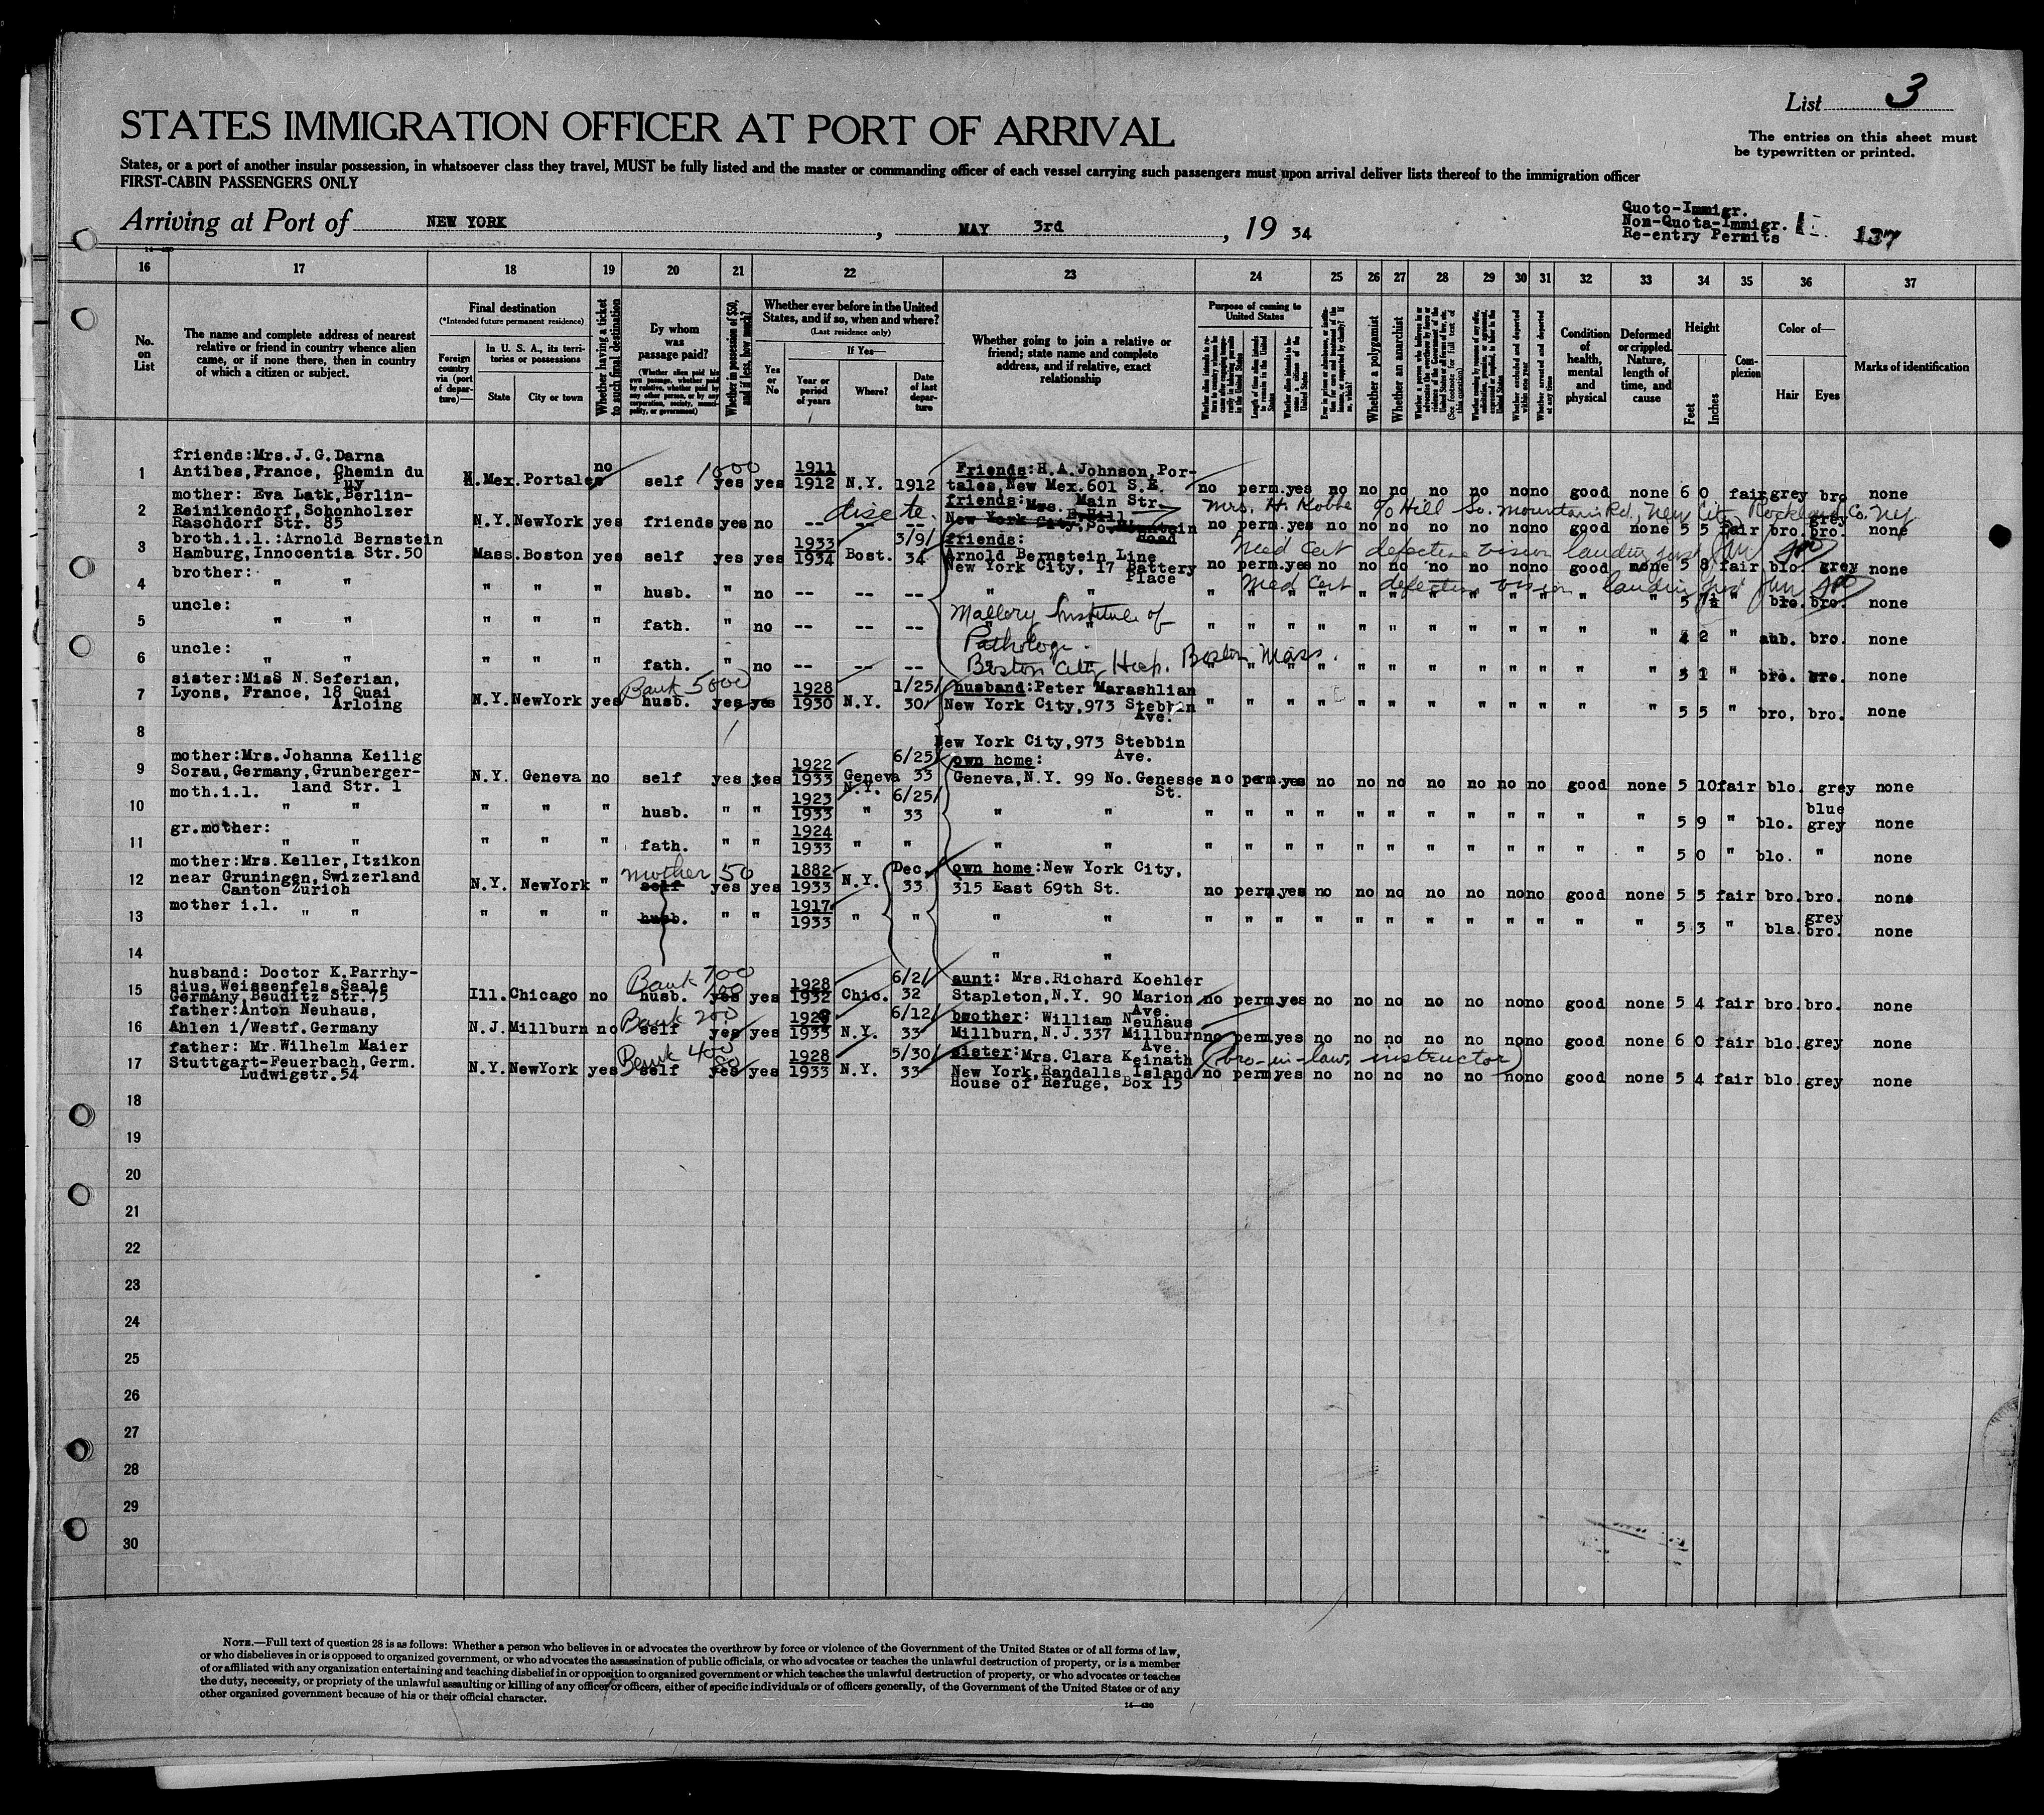 List 3
STATES IMMIGRATION OFFICER AT PORT OF ARRIVAL
The entries on this sheet must
be typewritten or printed.
States, or a port of another insular possession, in whatsoever class they travel, MUST be fully listed and the master or commanding officer of each vessel carrying such passengers must upon arrival deliver lists thereof to the immigration officer
FIRST-CABIN PASSENGERS ONLY
Arriving at Port of NEW YORK, MAY 3rd, 19 34
Quoto-Immigr.
Non-Quota-Immigr.
Re-entry Permits
137
14-430
16 17 18 19 20 21 22 23 24 25 26 27 28 29 30 31 32 33 34 35 36 37
No. on List
The name and complete address of nearest relative or friend in country whence alien came, or if none there, then in country of which a citizen or subject.
Final destination
(*Intended future permanent residence)
Foreign country via (port of departure)—
In U. S. A., its territories or possessions
State
City or town
Whether having a ticket to such final destination
By whom was passage paid?
(Whether alien paid his own passage, whether paid by relative, whether paid by any other person, or by any corporation, society, municipality, or government)
Whether in possession of $50, and if less, how much?
Whether ever before in the United States, and if so, when and where?
(Last residence only)
Yes or No
If Yes—
Year or period of years
Where?
Date of last departure
Whether going to join a relative or friend; state name and complete address, and if relative, exact relationship
Purpose of coming to United States
Length of time alien intends to remain in the United States
Whether alien intends to become a citizen of the United States
Whether a polygamist
Whether an anarchist
(See footnote for full text of this question)
Whether arrested and deported at any time
Condition of health, mental and physical
Deformed or crippled. Nature, length of time, and cause
Height
Feet
Inches
Complexion
Color of—
Hair
Eyes
Marks of identification
1 friends:Mrs.J.G.Darna
Antibes,France, Chemin du
Puy
N.Mex. Portales no self 1000 yes yes 1911 1912 N.Y. 1912
Friends:H.A.Johnson,Por-
tales,New Mex.601 S.E.
Main Str.
no perm. yes no no no no no no no good none 6 0 fair grey bro none
2 mother: Eva Latk,Berlin-
Reinikendorf,Schonholzer
Raschdorf Str. 85
N.Y. NewYork yes friends yes no -- -- --
friends:Mrs. E.Hill
New York City,
Road
Mrs. H. Kobbe c/o Hill So. Mountain Rd., New City Rockland Co. NY.
no perm. yes no no no no no no no good none 5 5 fair bro. grey bro. none
3 broth.i.l.:Arnold Bernstein
Hamburg,Innocentia Str.50
Mass. Boston yes self yes yes 1933 1934 Bost. 3/9/ 34
friends:
Arnold Bernstein Line
New York City, 17 Battery
Place
Med Cert defective vision
no perm. yes no no no no no no no good none 5 8 fair blo. grey none
4 brother:
" "
" " " husb. " no -- -- --
" "
Med Cert defective vision
" " " " " " " " " " " " 5 " bro. none
5 uncle:
" "
" " " fath. " no -- -- --
Mallory Institute of
Pathology.
" " " " " " " " " " " " 4 2 " aub. bro. none
6 uncle:
" "
" " " fath. " no -- -- --
Boston City Hosp. Boston Mass.
" " " " " " " " " " 3 1 " bro. bro. none
7 sister:MisS N.Seferian,
Lyons, France, 18 Quai
Arloing
N.Y. NewYork yes Bank 5000 husb. yes yes 1928 1930 N.Y. 1/25/ 30
husband:Peter Marashlian
New York City,973 Stebbin
Ave.
" " " " " " " " " " " " 5 5 " bro. bro. none
8
New York City,973 Stebbin
Ave.
9 mother:Mrs.Johanna Keilig
Sorau,Germany,Grunberger-
land Str. 1
N.Y. Geneva no self yes yes 1922 1933 Geneva N.Y. 6/25/ 33
own home:
Geneva,N.Y. 99 No.Genesse
St.
no perm. yes no no no no no no no good none 5 10 fair blo. grey none
10 moth.i.l.
" "
" " " husb. " " 1923 1933 " 6/25/ 33
" "
" " " " " " " " " " " " 5 9 " blo. blue grey none
11 gr.mother:
" "
" " " fath. " " 1924 1933 " "
" "
" " " " " " " " " " " " 5 0 " blo. " none
12 mother:Mrs.Keller,Itzikon
near Gruningen,Swizerland
Canton Zurich
N.Y. NewYork " mother 50 self yes yes 1882 1933 N.Y. Dec. 33
own home:New York City,
315 East 69th St.
no perm. yes no no no no no no no good none 5 5 fair bro. bro. none
13 mother i.l. " "
" " " husb. " " 1917 1933 " "
" "
" " " " " " " " " " " " 5 3 " bla. grey bro. none
14
" "
15 husband: Doctor K.Parrhy-
sius,Weissenfels,Saale
Germany,Beuditz Str.75
Ill. Chicago no Bank 700 husb. yes yes 1928 1932 Chic. 6/2/ 32
aunt: Mrs.Richard Koehler
Stapleton,N.Y. 90 Marion
Ave.
no perm. yes no no no no no no no good none 5 4 fair bro. bro. none
16 father:Anton Neuhaus,
Ahlen i/Westf.Germany
N.J. Millburn no Bank 200 self yes yes 1929 1933 N.Y. 6/12/ 33
brother: William Neuhaus
Millburn,N.J.337 Millburn
Ave.
no perm. yes no no no no no no no good none 6 0 fair blo. grey none
17 father: Mr.Wilhelm Maier
Stuttgart-Feuerbach,Germ.
Ludwigstr.54
N.Y. NewYork yes Bank 400 self yes yes 1928 1933 N.Y. 5/30/ 33
sister:Mrs.Clara Keinath (bro-in-law, instructor)
New York,Randalls Island
House of Refuge, Box 15
no perm. yes no no no no no no no good none 5 4 fair blo. grey none
18
19
20
21
22
23
24
25
26
27
28
29
30
NOTE.—Full text of question 28 is as follows: Whether a person who believes in or advocates the overthrow by force or violence of the Government of the United States or of all forms of law,
or who disbelieves in or is opposed to organized government, or who advocates the assassination of public officials, or who advocates or teaches the unlawful destruction of property, or is a member
of or affiliated with any organization entertaining and teaching disbelief in or opposition to organized government or which teaches the unlawful destruction of property, or who advocates or teaches
the duty, necessity, or propriety of the unlawful assaulting or killing of any officer or officers, either of specific individuals or of officers generally, of the Government of the United States or of any
other organized government because of his or their official character.
14—430